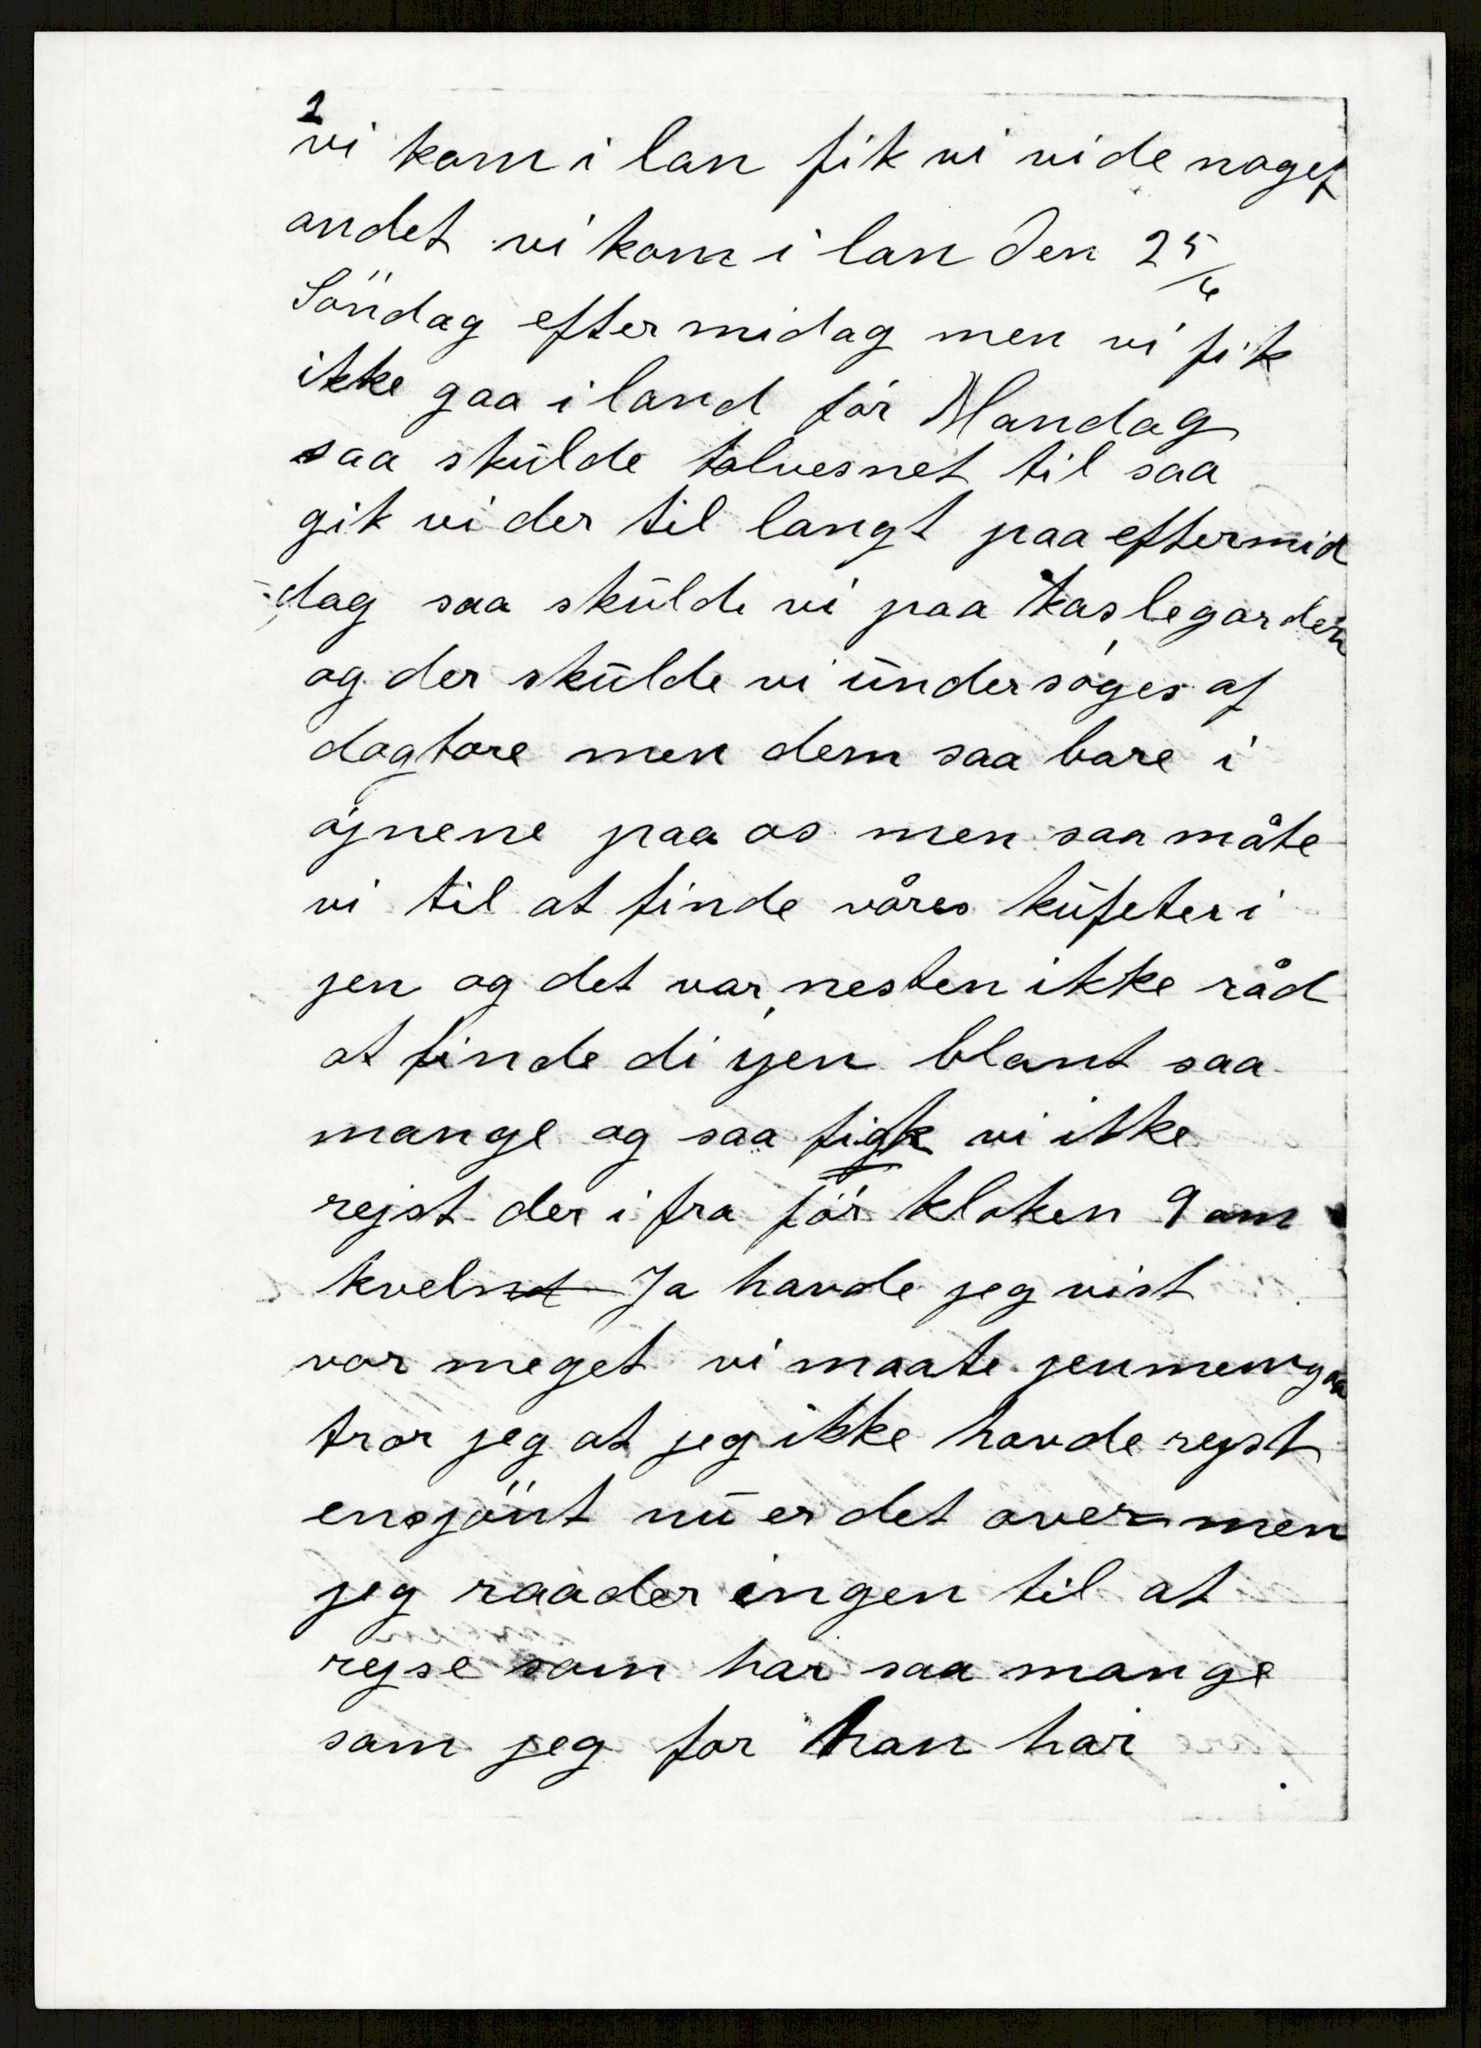 2
vi kom i lan fik vi vide noget
andet vi kom i lan den 25/6
Söndag efter midag men vi fik
ikke gaa i land för Mandag
saa skülde tolvesnet til saa
gik vi der til langt paa eftermid
dag saa skülde vi paa kaslegarden
og der skülde vi ündersöges af
dogtore men dem saa bare i
öjnene paa os men saa måte
vi til at finde våres küfeter i
jen og det var nesten ikke råd
at finde di ijen blant saa
mange og saa figk vi ikke
rejst der i fra för kloken 9 om
kvelnd Ja havde jeg vist
vor meget vi maate jenmemgaa
tror jeg at jeg ikke havde rejst
ensjönt nü er det over men
jeg raader ingen til at
rejse som har saa mange
som jeg for han har